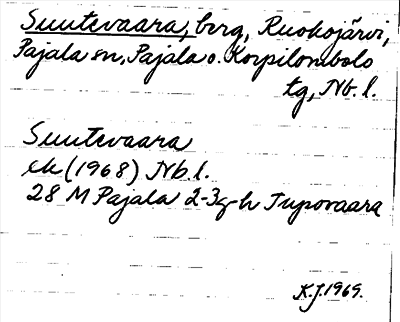 Suutevaara, berg, Ruokojärvi,
Pajala sn, Pajala o. Korpilombolo
tg, Nb. l.
Suutevaara
ek (1968) Nb. l.
28 M Pajala 2-3g-h Tupovaara
K.J. 1969.